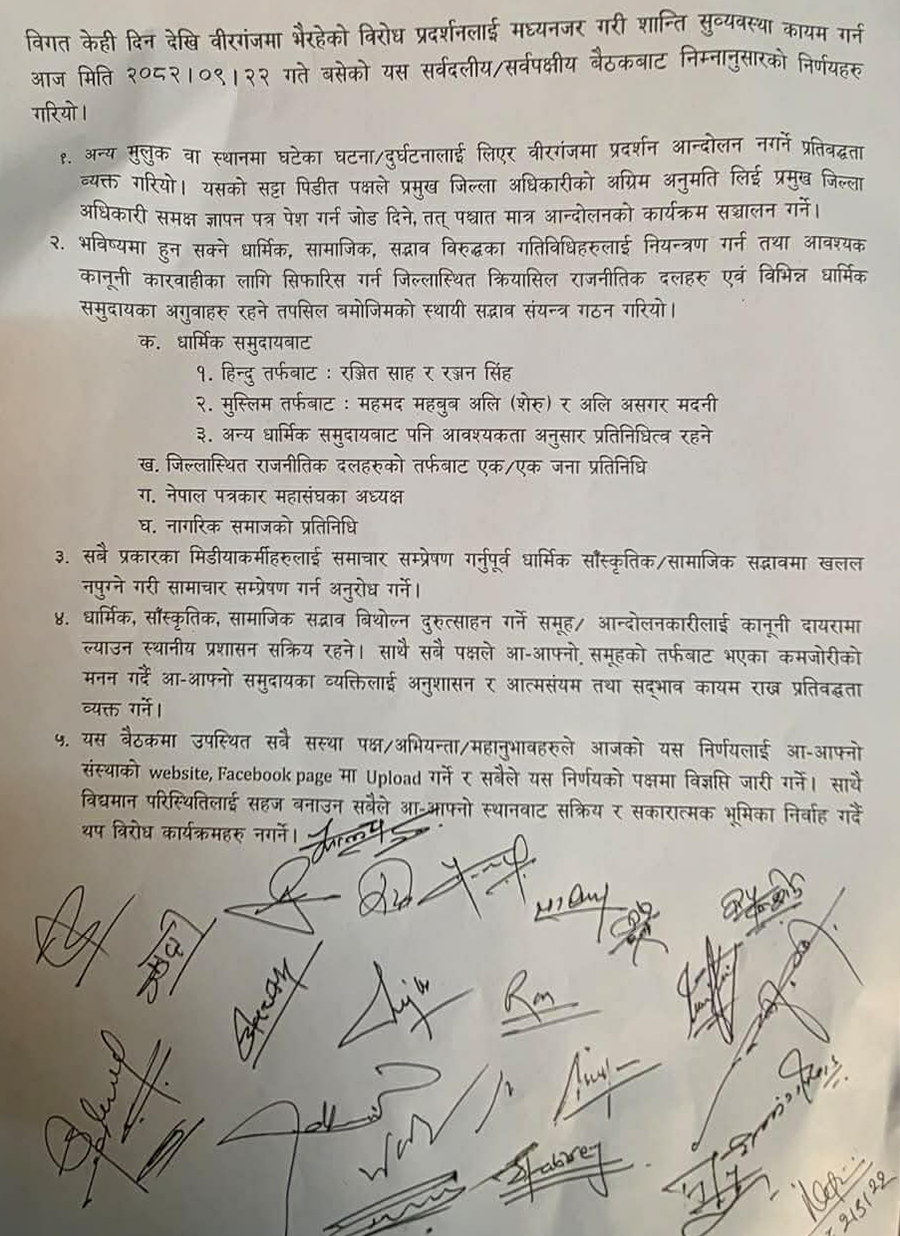 विगत केही दिन देखि वीरगंजमा भैरहेको विरोध प्रदर्शनलाई मध्यनजर गरी शान्ति सुव्यवस्था कायम गर्न
आज मिति २०८२।०९।२२ गते बसेको यस सर्वदलीय/सर्वपक्षीय बैठकबाट निम्नानुसारको निर्णयहरु
गरियो।
१. अन्य मुलुक वा स्थानमा घटेका घटना/दुर्घटनालाई लिएर वीरगंजमा प्रदर्शन आन्दोलन नगर्ने प्रतिवद्धता
व्यक्त गरियो। यसको सट्टा पिडीत पक्षले प्रमुख जिल्ला अधिकारीको अग्रिम अनुमति लिई प्रमुख जिल्ला
अधिकारी समक्ष ज्ञापन पत्र पेश गर्न जोड दिने, तत् पश्चात मात्र आन्दोलनको कार्यक्रम सञ्चालन गर्ने।
२. भविष्यमा हुन सक्ने धार्मिक, सामाजिक, सद्भाव विरुद्धका गतिविधिहरुलाई नियन्त्रण गर्न तथा आवश्यक
कानूनी कारवाहीका लागि सिफारिस गर्न जिल्लास्थित क्रियासिल राजनीतिक दलहरु एवं विभिन्न धार्मिक
समुदायका अगुवाहरु रहने तपसिल बमोजिमको स्थायी सद्भाव संयन्त्र गठन गरियो।
क. धार्मिक समुदायबाट
१. हिन्दु तर्फबाट : रञ्जित साह र रञ्जन सिंह
२. मुस्लिम तर्फबाट : महमद महबुब अलि (शेरु) र अलि असगर मदनी
३. अन्य धार्मिक समुदायबाट पनि आवश्यकता अनुसार प्रतिनिधित्व रहने
ख. जिल्लास्थित राजनीतिक दलहरुको तर्फबाट एक/एक जना प्रतिनिधि
ग. नेपाल पत्रकार महासंघका अध्यक्ष
घ. नागरिक समाजको प्रतिनिधि
३. सबै प्रकारका मिडीयाकर्मीहरुलाई समाचार सम्प्रेषण गर्नुपूर्व धार्मिक साँस्कृतिक/सामाजिक सद्भावमा खलल
नपुग्ने गरी सामाचार सम्प्रेषण गर्न अनुरोध गर्ने।
४. धार्मिक, साँस्कृतिक, सामाजिक सद्भाव बिथोल्न दुरुत्साहन गर्ने समूह/ आन्दोलनकारीलाई कानूनी दायरामा
ल्याउन स्थानीय प्रशासन सक्रिय रहने। साथै सबै पक्षले आ-आफ्नो समूहको तर्फबाट भएका कमजोरीको
मनन गर्दै आ-आफ्नो समुदायका व्यक्तिलाई अनुशासन र आत्मसंयम तथा सद्‌भाव कायम राख्न प्रतिवद्धता
व्यक्त गर्ने।
५. यस बैठकमा उपस्थित सबै सस्था पक्ष/अभियन्ता/महानुभावहरुले आजको यस निर्णयलाई आ-आफ्नो
संस्थाको website, Facebook page मा Upload गर्ने र सबैले यस निर्णयको पक्षमा विज्ञप्ति जारी गर्ने। साथै
विद्यमान परिस्थितिलाई सहज बनाउन सबैले आ-आफ्नो स्थानवाट सक्रिय र सकारात्मक भूमिका निर्वाह गर्दै
थप विरोध कार्यक्रमहरु नगर्ने।